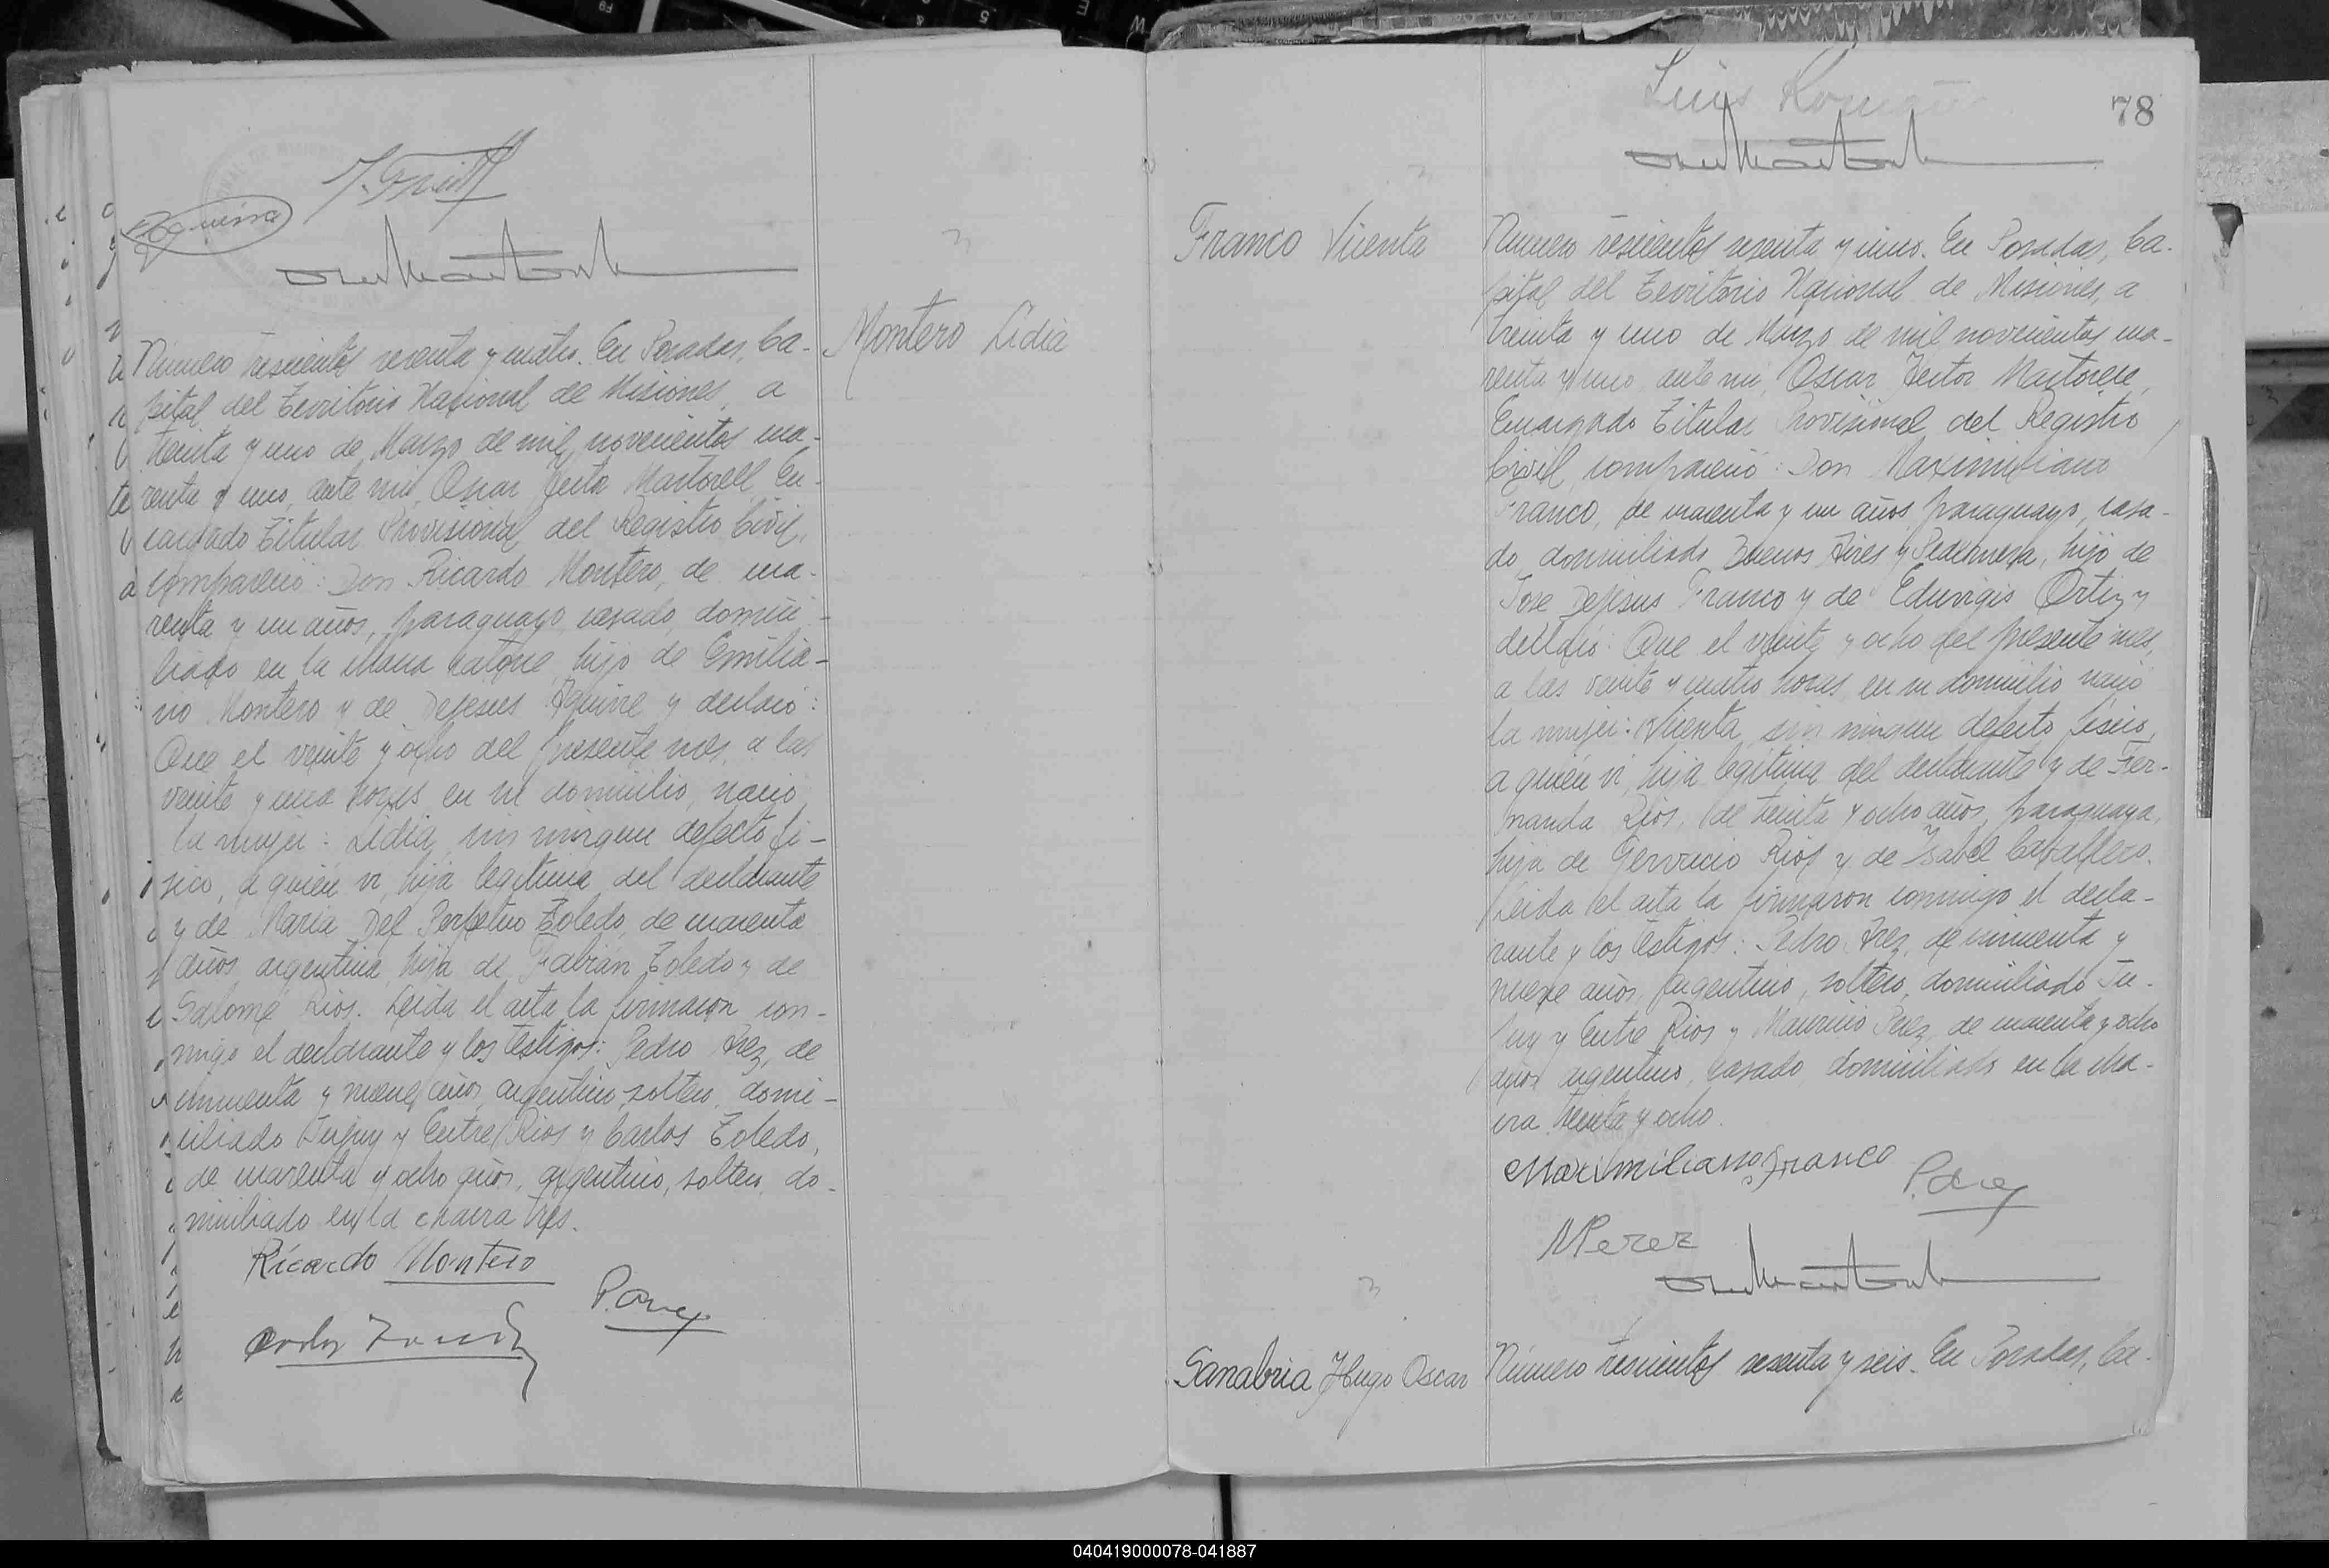 Aguirre
Montero Lidia
Número trescientos sesenta y cuatro. En Posadas, Ca-
pital del Territorio Nacional de Misiones, a
treinta y uno de Marzo de mil novecientos cua-
renta y uno, ante mi, Oscar Jertor Martorell, En-
cargado Titular Provisional del Registro Civil,
compareció: Don Ricardo Montero, de cua-
renta y un años, paraguayo, casado, domici-
liado en la chacra catorce, hijo de Emilia-
no Montero y de Dejesus Aguirre y declaró:
Que el veinte y ocho del presente mes, a las
veinte y una horas, en su domicilio, nació
la mujer: Lidia, sin ningun defecto fi-
sico, a quién vi, hija legitima del declarante
y de Maria Del Perpetuo Toledo, de cuarenta
años, argentina, hija de Fabián Toledo y de
Salomé Rios. Leida el acta la firmaron con-
migo el declarante y los testigos: Pedro Arez, de
cincuenta y nueve años, argentino, soltero, domi-
ciliado Jujuy y Entre Rios y Carlos Toledo,
de cuarenta y ocho años, argentino, soltero, do-
miciliado en la chacra tres.
Ricardo Montero
P. Arez
78
Luis
Franco Vicenta
Número trescientos sesenta y cinco. En Posadas, Ca-
pital del Territorio Nacional de Misiones, a
treinta y uno de Marzo de mil novecientos cua-
renta y uno, ante mi, Oscar Jertor Martorell,
Encargado Titular Provisional del Registro
Civil, compareció: Don Maximiliano
Franco, de cuarenta y un años, paraguayo, casa-
do, domiciliado Buenos Aires y Pedernera, hijo de
Jose Dejesus Franco y de Eduvigis Ortiz y
declaró: Que el veinte y ocho del presente mes,
a las veinte y cuatro horas, en su domicilio nació
la mujer: Vicenta, sin ningun defecto fisico,
a quién vi, hija legitima del declarante y de Fer-
nanda Rios, de treinta y ocho años, paraguaya,
hija de Gervacio Rios y de Isabel Caballero.
Leida el acta la firmaron conmigo el decla-
rante y los testigos: Pedro Arez, de cincuenta y
nueve años, argentino, soltero, domiciliado Ju-
juy y Entre Rios y Mauricio Perez, de cuarenta y ocho
años, argentino, casado, domiciliado en la cha-
cra treinta y ocho.
Maximiliano Franco
P. Arez
M Perez
Sanabria Hugo Oscar
Número trescientos sesenta y seis. En Posadas, Ca-
040419000078-041887